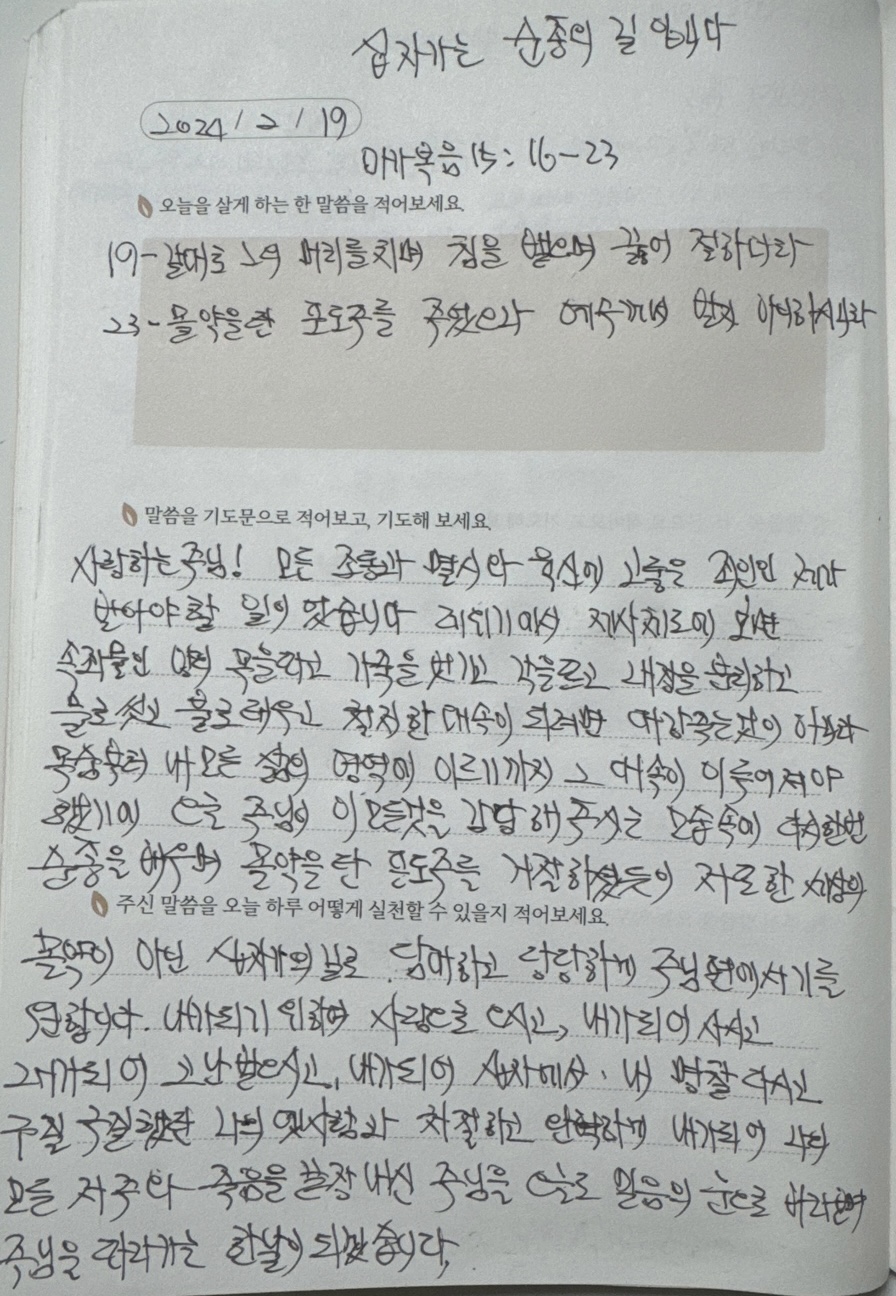 십자가는 순종의 길 입니다
2024/2/19
마가복음 15:16-23
오늘을 살게 하는 한 말씀을 적어보세요.
19-갈대로 그의 머리를 치며 침을 뱉으며 꿇어 절하더라
23-몰약을 탄 포도주를 주었으나 예수께서 받지 아니하시니라
말씀을 기도문으로 적어보고, 기도해 보세요.
사랑하는 주님! 모든 조롱과 멸시와 육신에 고통은 죄인인 제가
받아야 할 일이었습니다 레위기에서 제사치르에 보면
속죄물인 양의 목을 따고 가죽을 벗기고 각을 뜨고 내장을 분리하고
물로 씻고 불로 태우고 철저한 대속이 되려면 마냥 죽는것이 아니라
목숨부터 내 모든 삶의 영역에 이르기까지 그 대속이 이루어져야
했기에 오늘 주님이 이 모든것을 감당해 주시는 모습속에 다시한번
순종을 배우며 몰약을 탄 포도주를 거절하셨듯이 저또한 세상의
주신 말씀을 오늘 하루 어떻게 실천할 수 있을지 적어보세요.
몰약이 아닌 십자가의 길로 담대하고 당당하게 주님편에 서기를
원합니다. 내가되기 위하여 사람으로 오시고, 내가되어 사시고
내가되어 고난받으시고, 내가되어 십자에서 내 명찰 다시고
구질 구질했던 나의 옛사람과 처절하고 완벽하게 내가되어 나의
모든 저주와 죽음을 끝장내신 주님을 오늘도 믿음의 눈으로 바라보며
주님을 따라가는 한날이 되겠습니다.